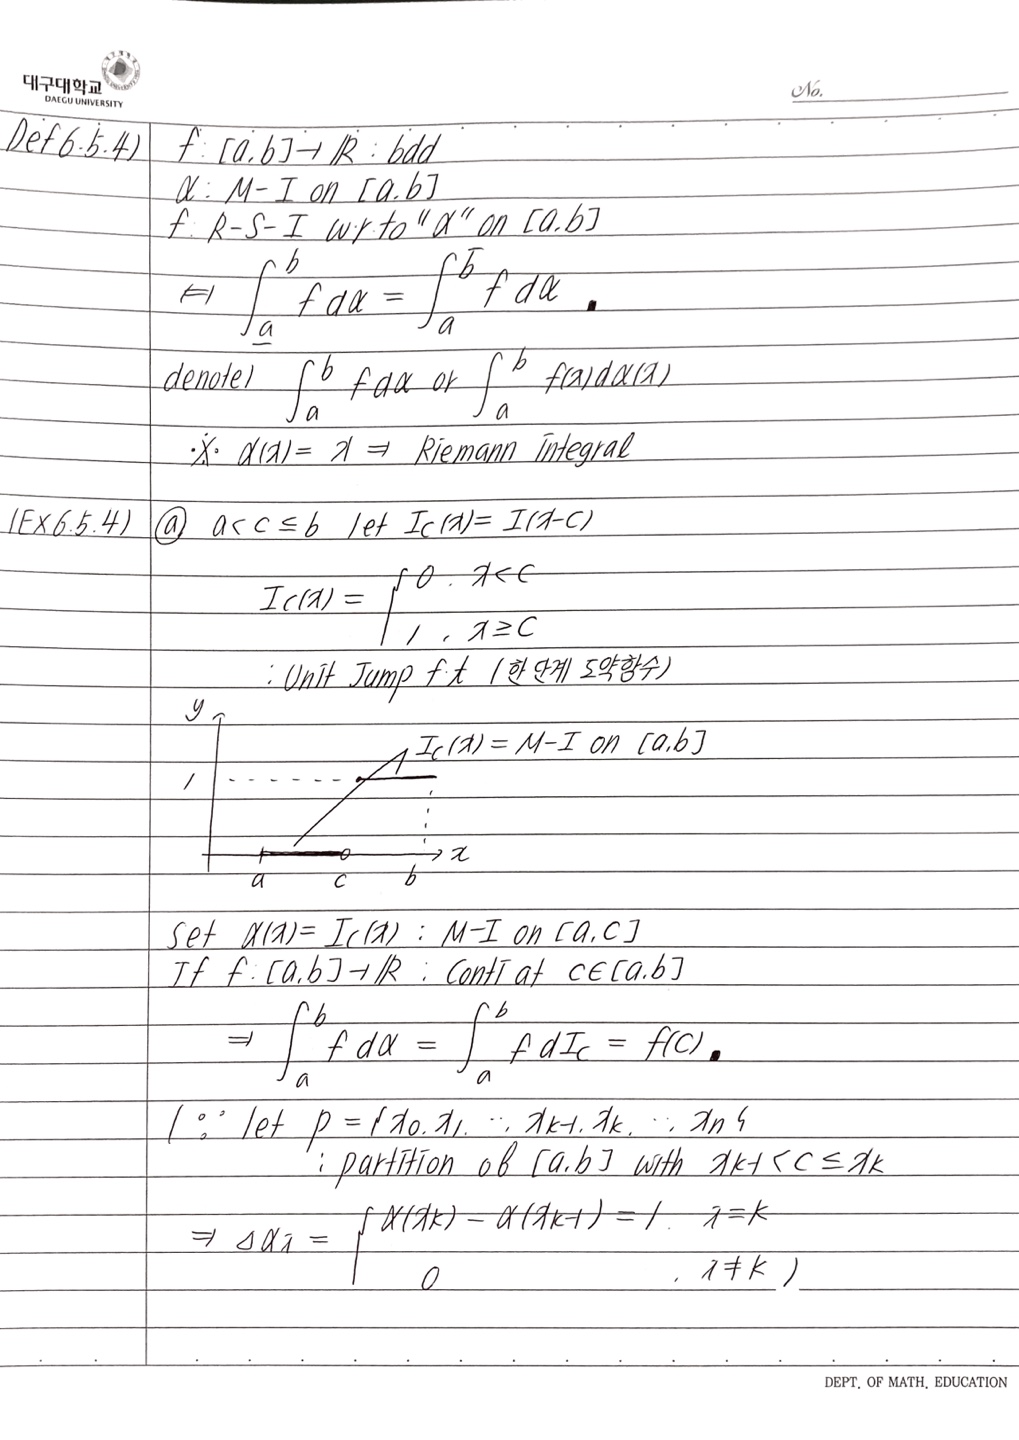 대구대학교
DAEGU UNIVERSITY
No.
Def 6.5.4) f: [a,b]→ℝ : bdd
α: M-I on [a,b]
f: R-S-I w.r.to "α" on [a,b]
⇔ ∫_a̲^b f dα = ∫_a^b̅ f dα .
denote) ∫_a^b f dα or ∫_a^b f(x)dα(x)
※ α(x) = x ⇒ Riemann integral
(EX 6.5.4) ⓐ a<c≤b let I_c(x) = I(x-c)
I_c(x) = { 0 , x<c
1 , x≥c
: Unit Jump f.t (한 단계 도약함수)
y
I_c(x) = M-I on [a,b]
1
x
a c b
Set α(x) = I_c(x) : M-I on [a,c]
If f: [a,b]→ℝ : conti at c∈[a,b]
⇒ ∫_a^b f dα = ∫_a^b f dI_c = f(c).
(∵ let p = {x_0, x_1, ⋯, x_{k-1}, x_k, ⋯, x_n}
: partition of [a,b] with x_{k-1} < c ≤ x_k
⇒ Δα_i = { α(x_k) - α(x_{k-1}) = 1 , i=k
0 , i≠k )
DEPT. OF MATH. EDUCATION